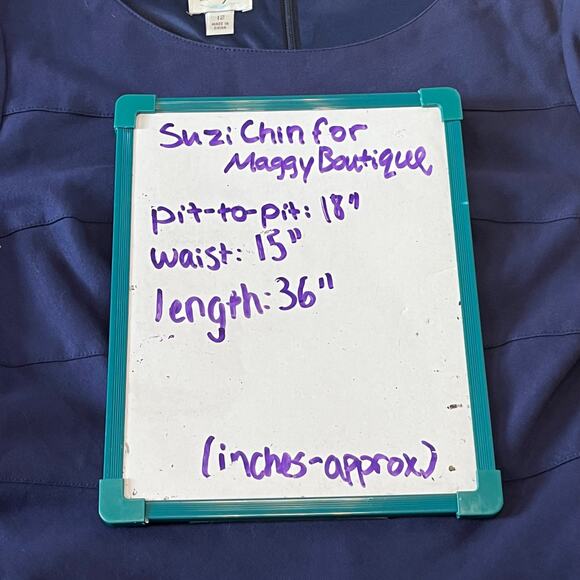 12
MADE IN
CHINA
Suzi Chin for
Maggy Boutique
pit-to-pit: 18"
waist: 15"
length: 36"
(inches-approx)